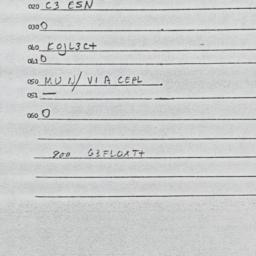 020 C3 ESN
030 0
040 KOJL3C+
041 0
050 MUN/VIA CEPL
051 —
060 0
900 G3FLOAT+